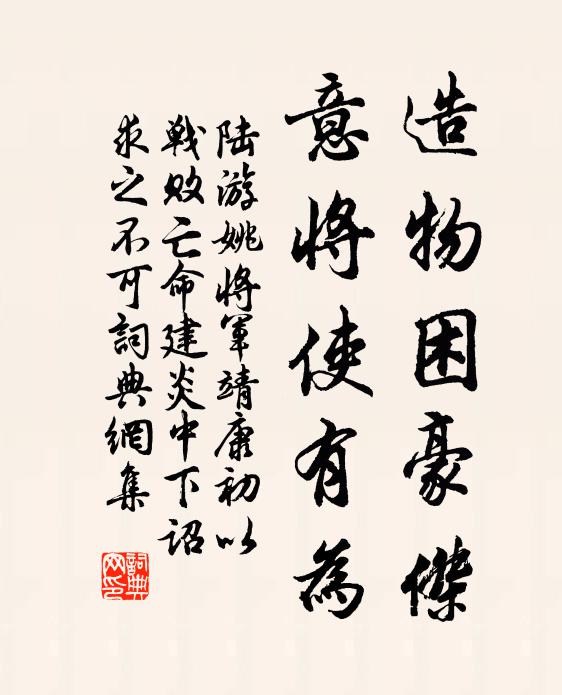 造物困豪傑
意將使有為
陸游姚將軍靖康初以
戰敗亡命建炎中下詔
求之不可詞典網集
詞典
网印